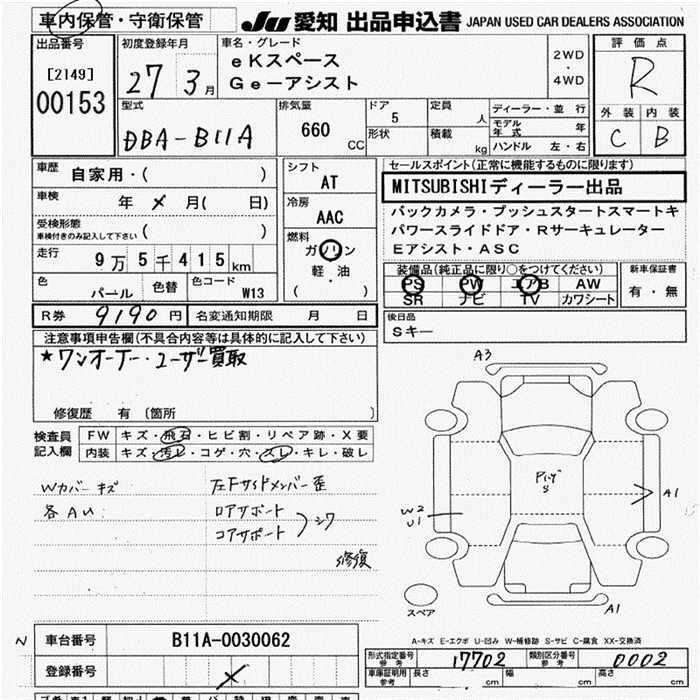 車内保管・守衛保管 JU 愛知 出品申込書 JAPAN USED CAR DEALERS ASSOCIATION
出品番号
[2149]
00153
初度登録年月
27 3月
車名・グレード
eKスペース
Ge-アシスト
2WD
・
4WD
評価点
R
外装 内装
C B
型式
DBA-B11A
排気量
660
CC
ドア
5
形状
定員
人
積載
kg
ディーラー・並行
モデル年式 年
ハンドル 左・右
車歴
自家用・( )
車検
年 月( 日)
受検形態
車検付きのみ記入して下さい ( )
走行
9万5千415km
色
パール
色替
色コード
W13
シフト
AT
冷房
AAC
燃料
ガソリン
軽・油
( )
セールスポイント(正常に機能するものに限ります)
MITSUBISHIディーラー出品
バックカメラ・プッシュスタートスマートキ
パワースライドドア・Rサーキュレーター
Eアシスト・ASC
装備品(純正品に限り○をつけてください)
PS PW エアB AW
SR ナビ TV カワシート
新車保証書
有・無
R券 9190円 名変通知期限 月 日
後日品
Sキー
注意事項申告欄(不具合内容等は具体的に記入して下さい)
★ワンオーナー・ユーザー買取
修復歴 有 〔箇所 〕
検査員
記入欄
FW キズ・飛石・ヒビ割・リペア跡・X要
内装 キズ・汚レ・コゲ・穴・スレ・キレ・破レ
Wカバーキズ
各AU
左Fサイドメンバー歪
ロアサポート
コアサポート
シワ
修復
A3
W2
U1
A1
A1
スペア
A-キズ E-エクボ U-凹み W-補修跡 S-サビ C-腐食 XX-交換済
N
車台番号 B11A-0030062
登録番号 X
形式指定番号
参考
17702
類別区分番号
参考
0002
車庫証明用
参考
長さ cm 幅 cm 高さ cm